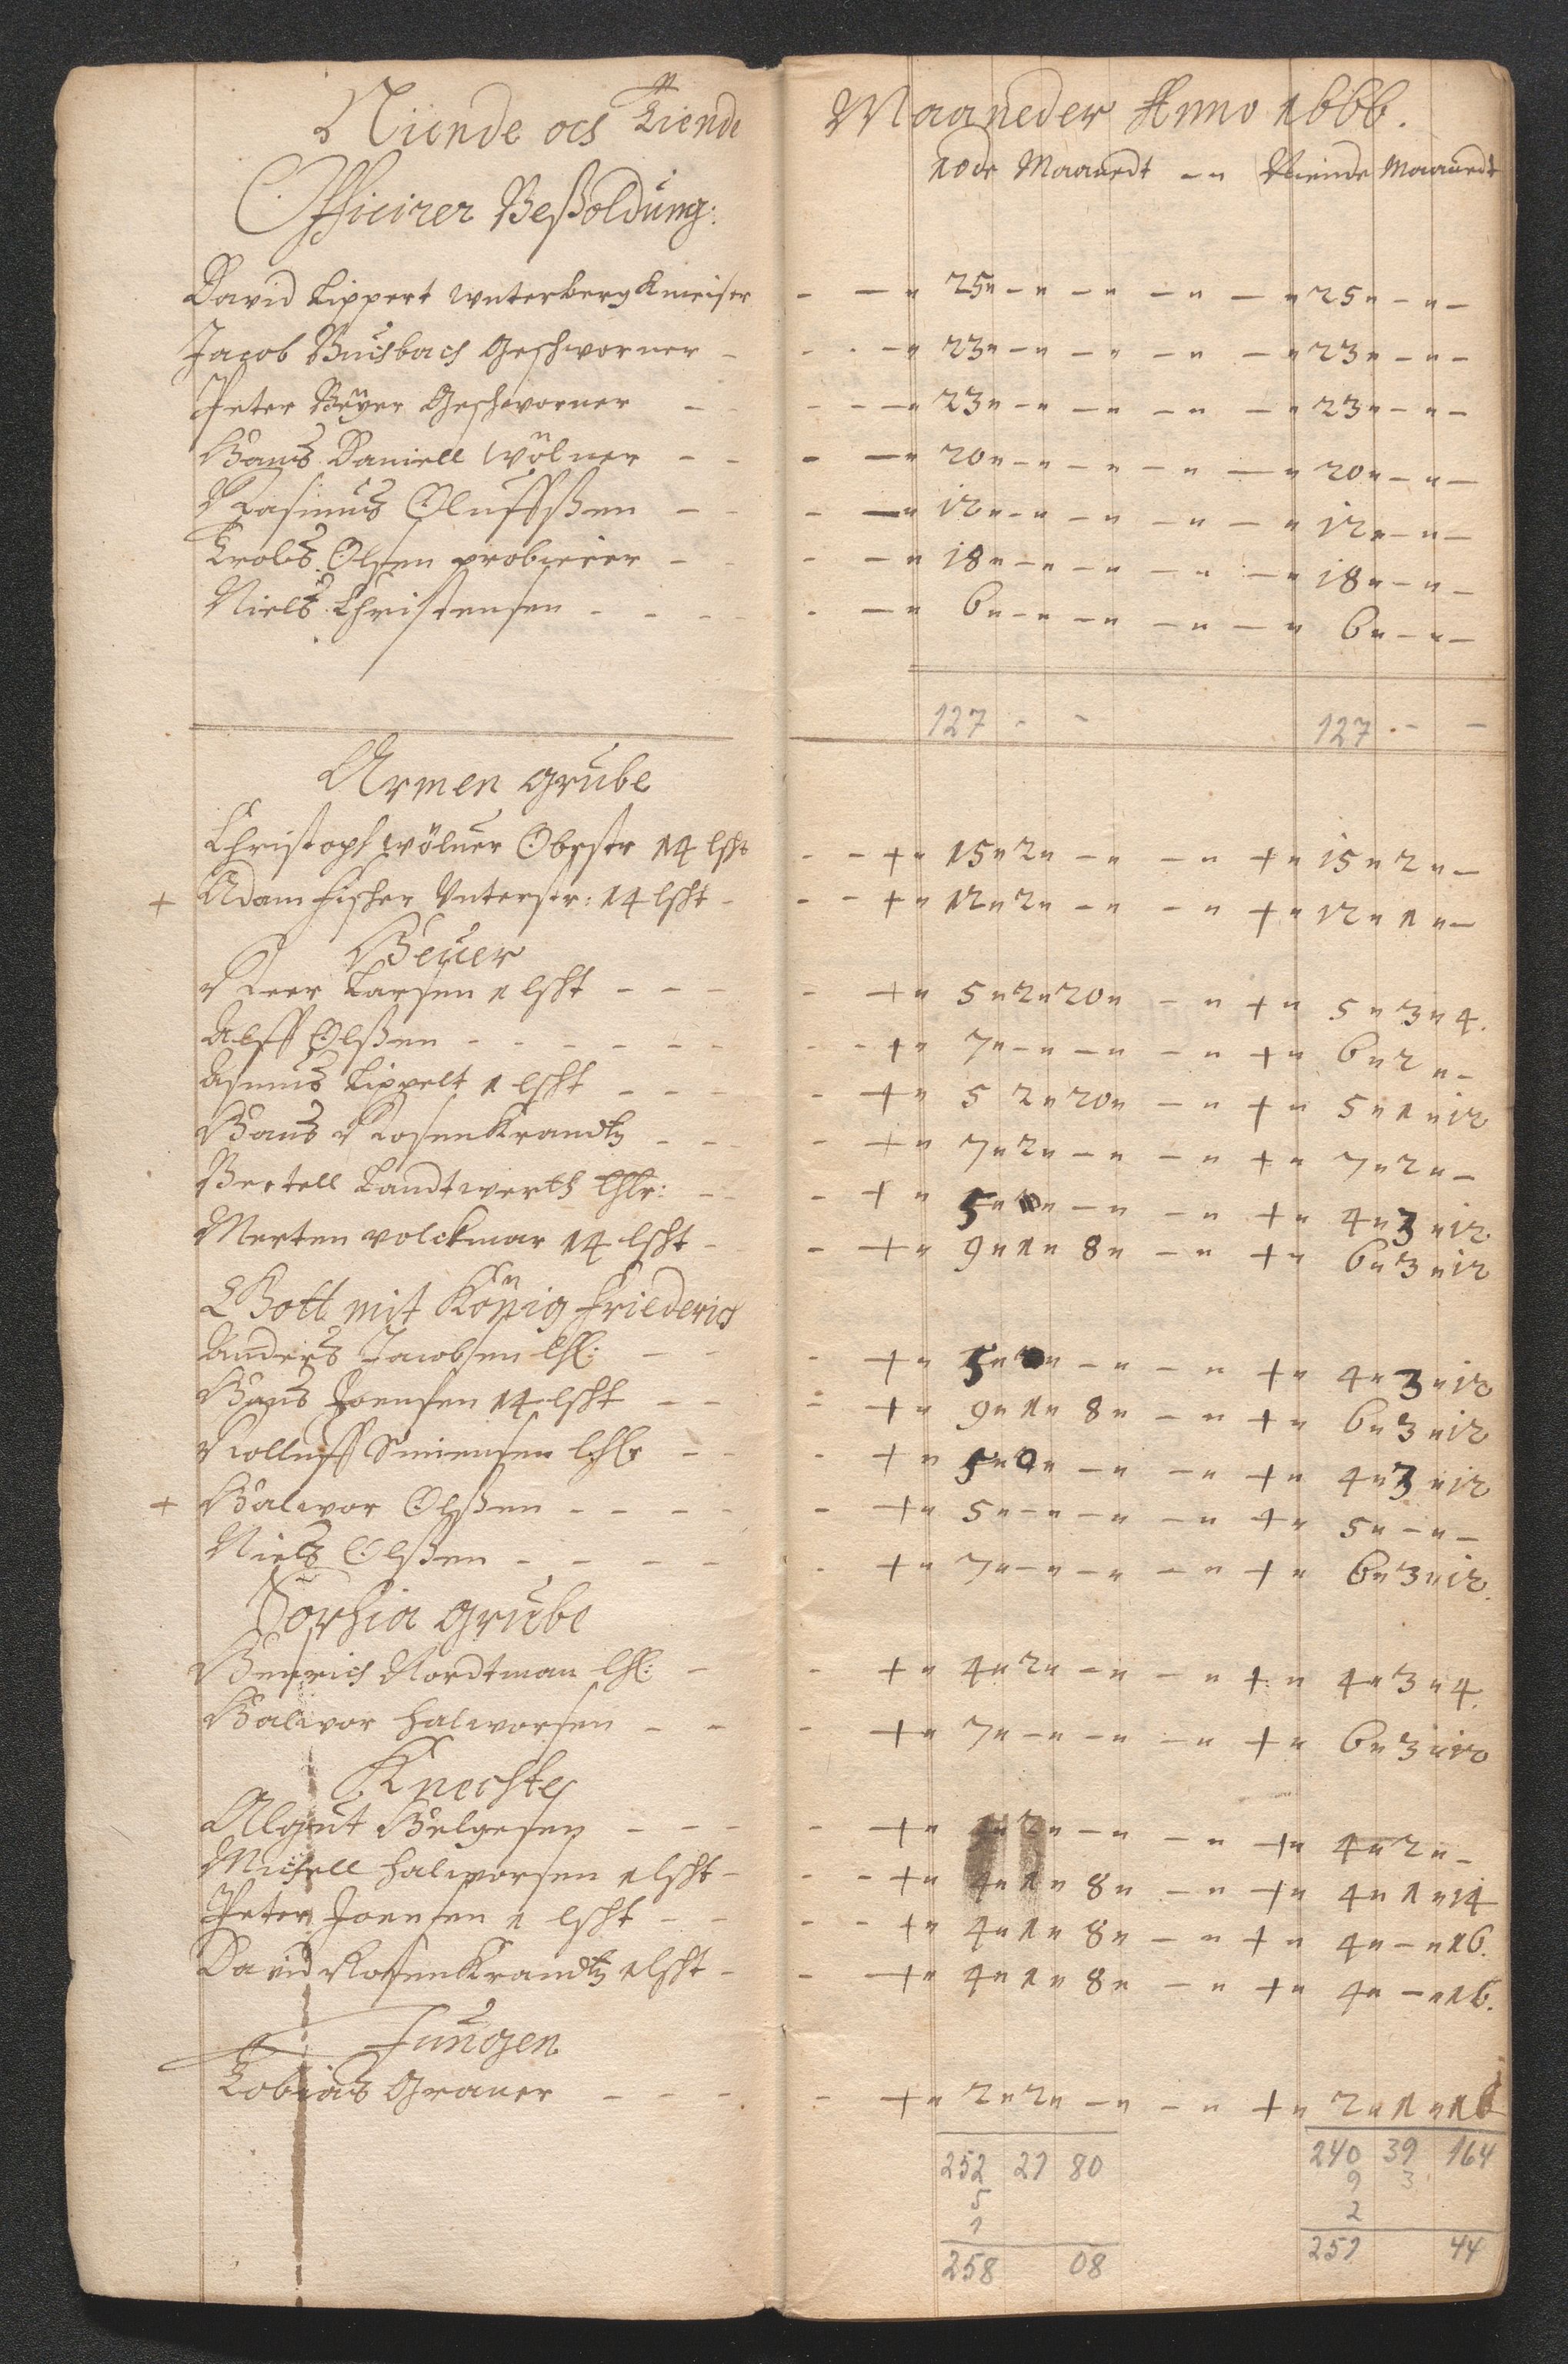 Niende och Tiende Maaneder Anno 1666.
10de Maanedt -" Niende Maanedt
Officirer Beßoldung:
David Lippert unterbergKmeister - -" 25"-"-"-"-"25"-"-
Jacob Buchbach Geschworner - -" 23"-"-"-"-"23"-"-
Peter Beÿer Geschworner - -" 23"-"-"-"-"23"-"-
Hans Daniell Wölner - -" 20"-"-"-"-"20"-"-
Rasmus Oluffßen - -" 12"-"-"-"-"12"-"-
Trolß Olsen probierer - -" 18"-"-"-"-"18"-"-
Nielß Christensen - -" 6"-"-"-"-"6"-"-
127 - - 127 - -
Armen grube
Christoph Wölner Oberstr 14 lscht - + " 15"2"-"-"+"15"2"-
+ Adam fischer Unterstr: 14 lscht - + " 12"2"-"-"+"12"1"-
Heuer
Peer Larsen 1 lscht - + " 5"2"20"-"+"5"3"4.
Alff Olßen - + " 7"-"-"-"+"6"2"-
Asmus Lippelt 1 lscht - + " 5 2"20"-"+"5"1"12
Hans RosenKrandtz - + " 7"2"-"-"+"7"2"-
Bertell Landtwerth lhlr: - + " 5"0"-"-"+"4"3"12
Merten volckmar 14 lscht - + " 9"1"8"-"+"6"3"12
Gott mit König friederich
Anderß Jacobsen lhl: - + " 5"0"-"-"+"4"3"12
Hans Joensen 14 lscht - + " 9"1"8"-"+"6"3"12
Rolluff Simensen lhlr - + " 5"0"-"-"+"4"3"12
+ Halvor Olßen - + " 5"-"-"-"+"5"-"-
Niels Olßen - + " 7"-"-"-"+"6"3"12.
Sophia grube
Henrich Nordtman lhl: - + " 4"2"-"-"+"4"3"4.
Halvor halvorsen - + " 7"-"-"-"+"6"3"12
Knechte
Algut Helgesen - + " 4"2"-"-"+"4"2"-
Michell halvorsen 1 lscht - + " 4"1"8"-"+"4"1"14
Peter Joensen 1 lscht - + " 4"1"8"-"+"4"-"16.
David RosenKrandtz 1 lscht - + " 4"1"8"-"+"4"-"16.
Jungen
Tobias Graner - + " 2"2"-"-"+"2"1"16
252 21 80 240 39 164
5 9 3
1 2
258 08 251 44